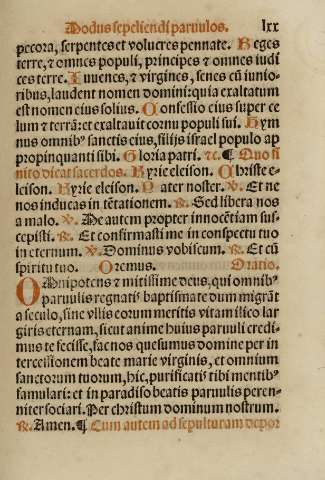 Modus sepeliendi paruulos. lxx
pecora, serpentes et volucres pennate. Reges
terre, ⁊ omnes populi, principes ⁊ omnes iudi
ces terre. Iuuenes, ⁊ virgines, senes cũ iunio-
ribus, laudent nomen domini: quia exaltatum
est nomen eius solius. Confessio eius super ce
lum ⁊ terrã: et exaltauit cornu populi sui. Hym
nus omnibꝰ sanctis eius, filijs israel populo ap
propinquanti sibi. Gloria patri. ⁊c. ¶ Quo fi
nito dicat sacerdos. Kyrie eleison. Christe e-
leison. Kyrie eleison. Pater noster. ℣. Et ne
nos inducas in tẽtationem. ℟. Sed libera nos
a malo. ℣. Me autem propter innocẽtiam sus-
cepisti. ℟. Et confirmasti me in conspectu tuo
in eternum. ℣. Dominus vobiscum. ℟. Et cũ
spiritu tuo. Oremus. Oratio.
OMnipotens ⁊ mitissime deus, qui omnibꝰ
paruulis regnatis baptismate dum migrãt
a seculo, sine vllis eorum meritis vitam ilico lar
giris eternam, sicut anime huius paruuli credi-
mus te fecisse, fac nos quesumus domine per in
tercessionem beate marie virginis, et omnium
sanctorum tuorum, hic, purificatis tibi mentibꝰ
famulari: et in paradiso beatis paruulis peren-
niter sociari. Per christum dominum nostrum.
℟. Amen. ¶ Cum autem ad sepulturam depor